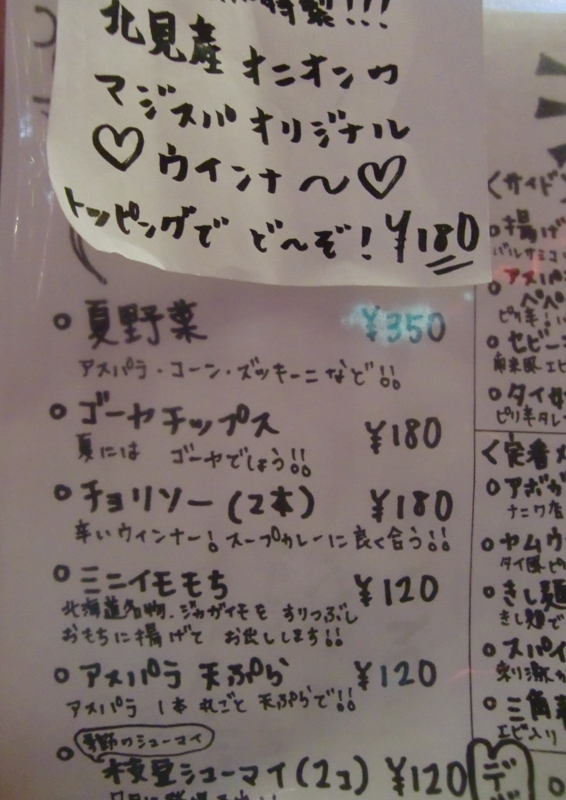 特製!!!
北見産 オニオンの
マジスパ オリジナル
♡ウインナ〜♡
トッピングで ど〜ぞ! ¥180
○夏野菜 ¥350
アスパラ・コーン・ズッキーニなど!!
○ゴーヤチップス ¥180
夏には ゴーヤでしょう!!
○チョリソー(2本) ¥180
辛いウィンナー!スープカレーに良く合う!!
○ミニイモもち ¥120
北海道名物、ジャガイモを すりつぶし
おもちに揚げて お出しします!!
○アスパラ 天ぷら ¥120
アスパラ 1本 丸ごと 天ぷらで!!
○季節のシューマイ
枝豆シューマイ(2コ) ¥120
<サイド
○揚げ
バルサミコ
○アスパ
ペペ
ピリ辛!
○セビー
南米風エビ
○タイ
ピリ辛タレ
<定番
○アボカ
ナニワ店
○ヤムウ
タイ風
○きし麺
きし麺で
○スパイ
○三角
エビ入り
デ